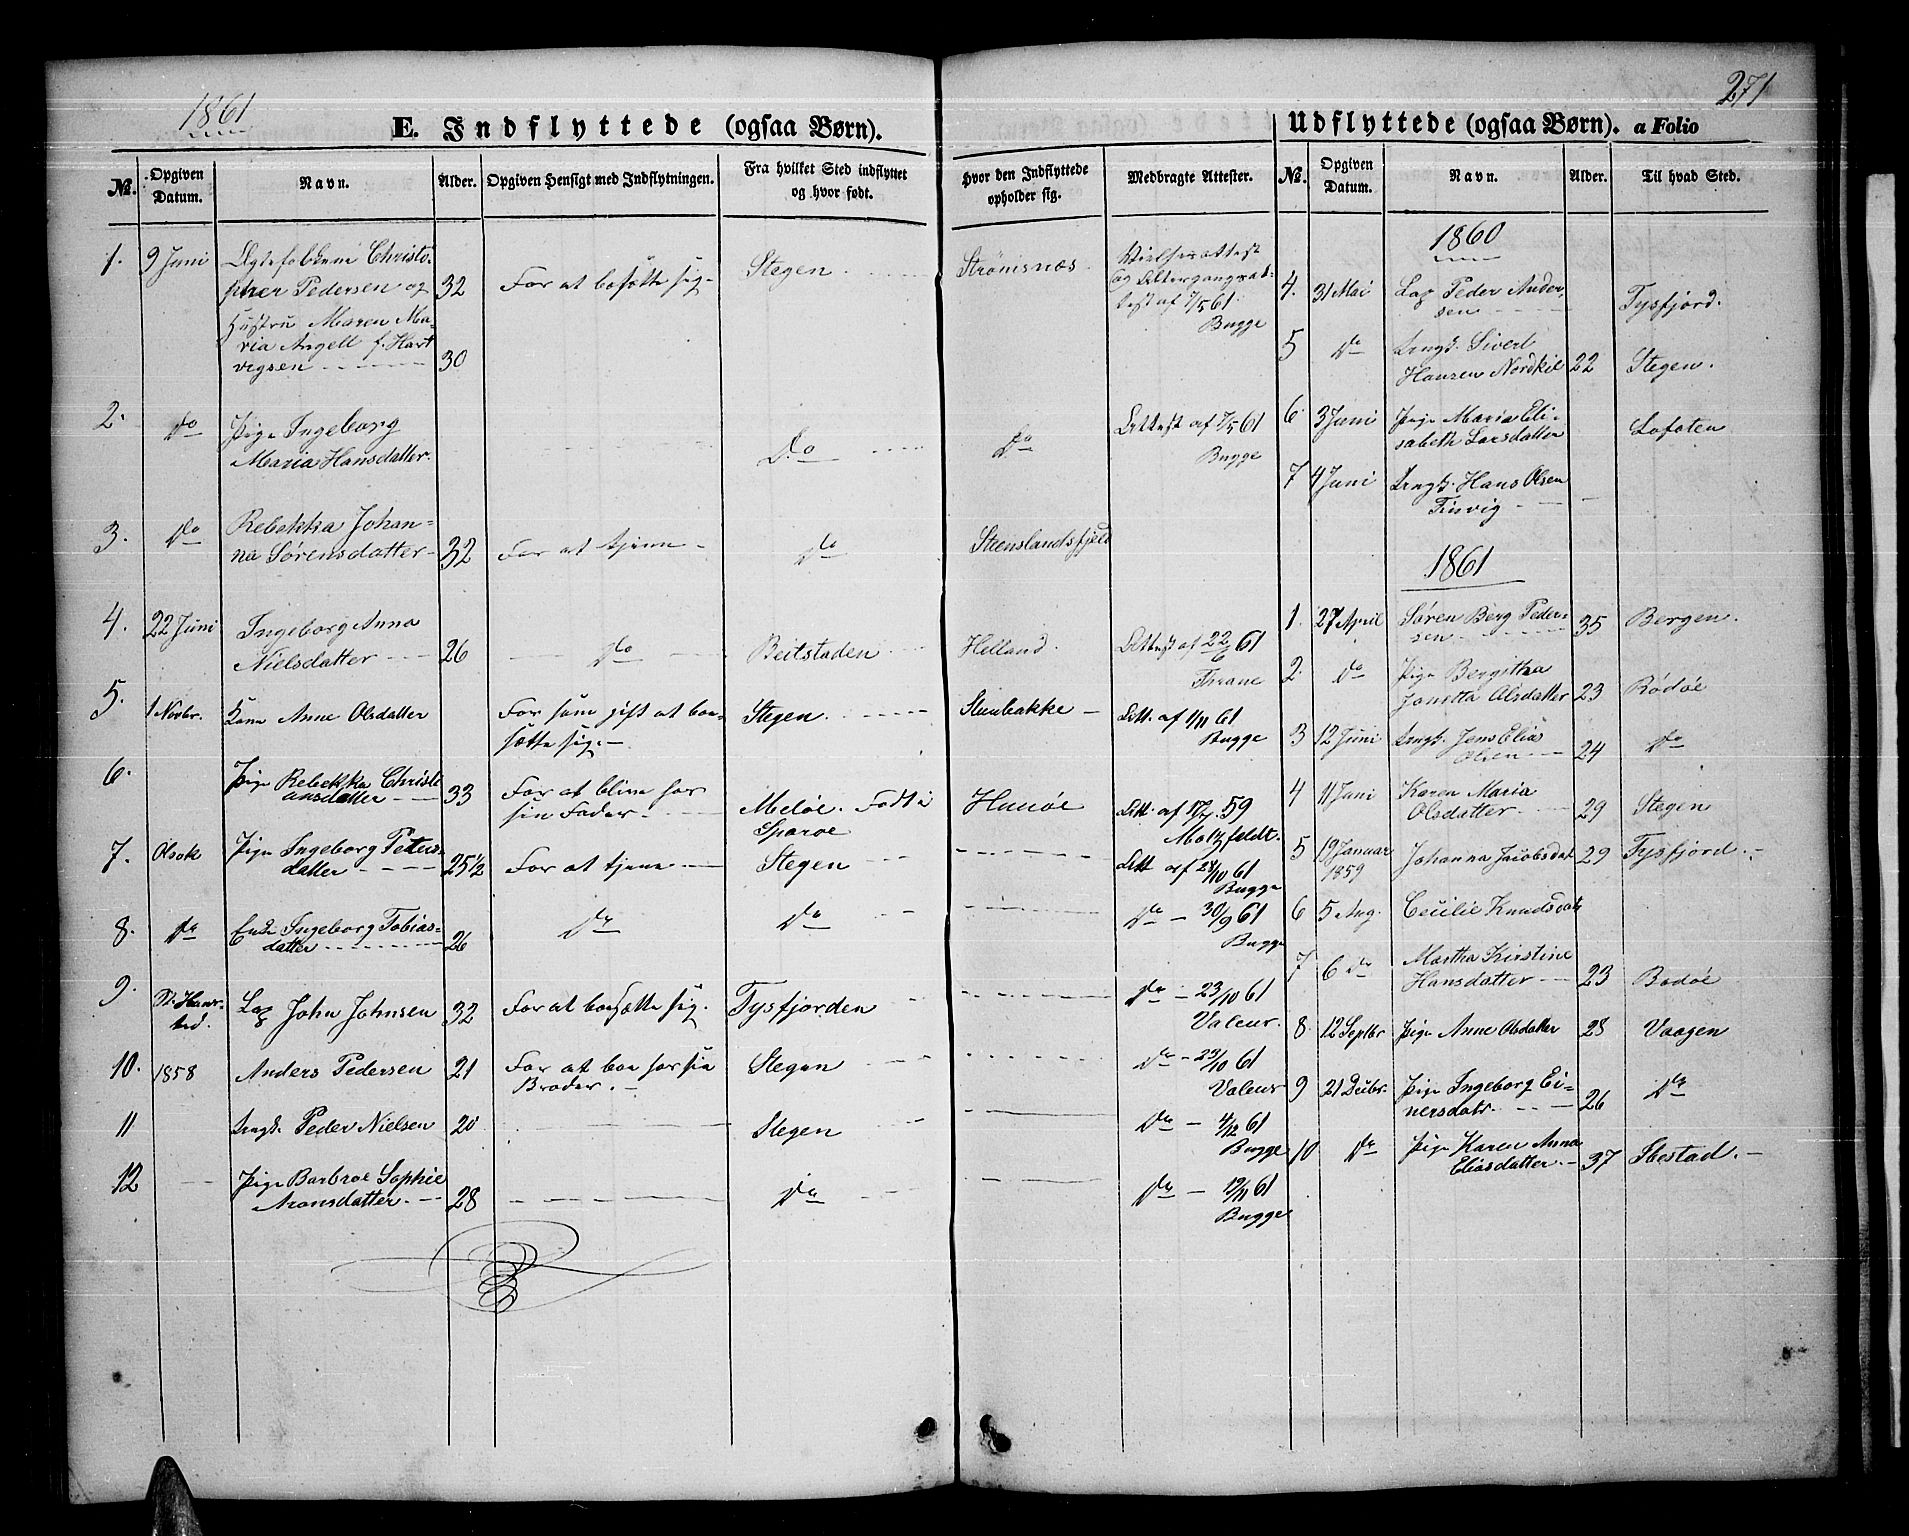 1861
271
E. Indflyttede (ogsaa Børn).
Udflyttede (ogsaa Børn). a Folio
No. Opgiven Datum. Navn. Alder. Opgiven Hensigt med Indflytningen. Fra hvilket Sted indflyttet og hvor født. Hvor den Indflyttede opholder sig. Medbragte Attester.
1. 9 Juni Ægtefolkene Christo- Stegen Strømsnæs. Vielsesattest
pher Pedersen og 32 For at bosætte sig og Altergangsat-
Hustru Maren Ma- test af 7/5 61.
ria Angell f. Hart Bugge
vigsen 30
2. Do Pige Ingeborg Attest af 7/5 61
Maria Hansdatter. Do Do Bugge
3. Do Rebekka Johan- Steenslandsfjeld
na Sørensdatter 32 For at tjene Do
4. 22 Juni Ingeborg Anna
Nielsdatter 26 Do Beitstaden Helland. Attest af 22/6 61
Thrane
5. 1 Novbr. Kone Anne Olsdatter For som gift at bo- Stegen Steenbakke Att. af 1/11 61
sætte sig. Bugge
6. Pige Rebekka Christi
ansdatter 33 For at blive hos Meløe. Født i Hanøe Att. af 17/7 59
sin Fader. Sparoe Moltzfeldt.
7. Olsok Pige Ingeborg Peters-
datter 25 1/2 For at tjene Stegen Att af 28/10 61
Bugge
8. Do Enke Ingeborg Tobias- Do Do Do 30/9 61
datter 26 Bugge
9. St. Hans-
tid. Lap John Johnsen 32 For at bosætte sig. Tysfjorden Do 23/10 61
Valeur.
10. 1858 Anders Pedersen 21 For at boe hos sin Stegen Do 23/10 61
Broder. Valeur
11 Ungk. Peder Nielsen 20 Stegen Do 4/12 61
Bugge
12 Pige Barbroe Sophie
Aronsdatter. 28 Do Do 19/11 61
Bugge
No. Opgiven Datum. Navn. Alder. Til hvad Sted.
1860
4. 31 Mai Lap Peder Ander-
sen Tysfjord.
5 Do Ungk. Sivert
Hansen Nordkil 22 Stegen.
6 3 Juni Pige Maria Eli-
sabeth Larsdatter Lofoten
7 4 Juni Ungk. Hans Olsen
Finvig
1861
1. 27 April Søren Berg Peder-
sen 35 Bergen.
2. Do Pige Bergitha
Jonetta Olsdatter 23 Rödöe
3 12 Juni Ungk. Jens Elias
Olsen 24 Do
4 11 Juni Karen Maria
Olsdatter 29 Stegen
5 19 Januar
1859 Johanna Jacobsdat 29 Tysfjord.
6 5 Aug. Cecilie Knudsdatr
7 6 Do Martha Kirstine
Hansdatter 23 Bodöe
8. 12 Septbr Pige Anne Olsdatter 28 Vaagen
9 21 Decbr. Pige Ingeborg Ei-
nersdatr. 26 Do
10 Do Pige Karen Anna
Eliasdatter. 37 Ibestad.